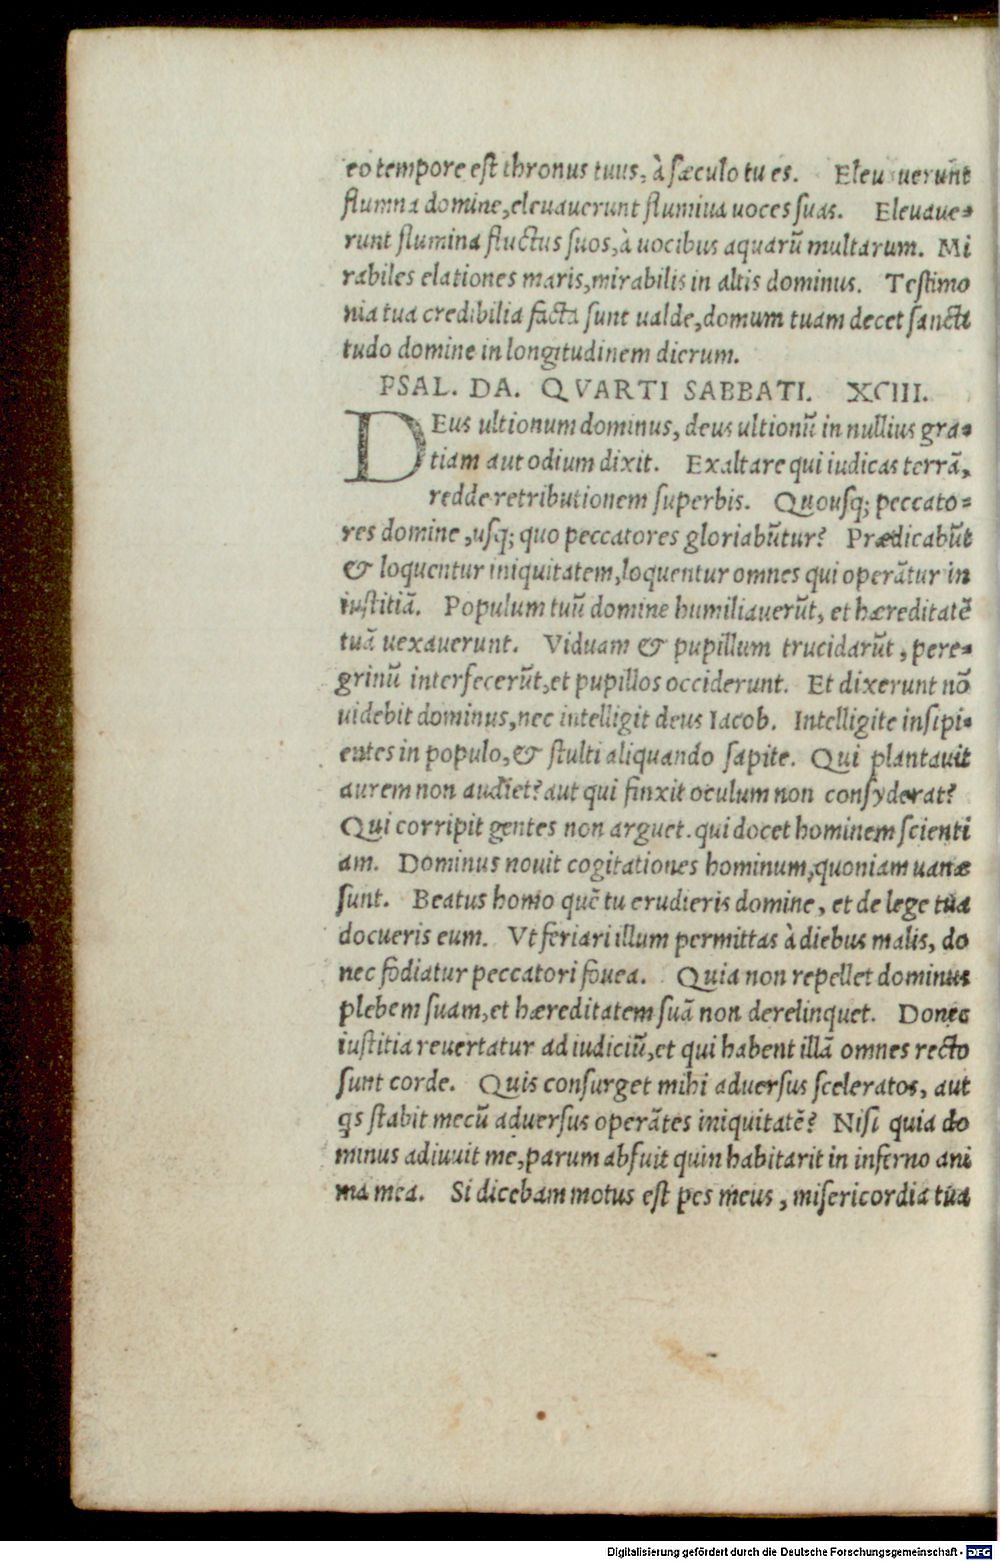 eo tempore est thronus tuus, à sæculo tu es. Eleu uerũnt
flumina domine, eleuauerunt flumina uoces suas. Eleuaue-
runt flumina fluctus suos, à uocibus aquarũ multarum. Mi
rabiles elationes maris, mirabilis in altis dominus. Testimo
nia tua credibilia facta sunt ualde, domum tuam decet sancti
tudo domine in longitudinem dierum.
PSAL. DA. QVARTI SABBATI. XCIII.
DEus ultionum dominus, deus ultionũ in nullius gra-
tiam aut odium dixit. Exaltare qui iudicas terrã,
redde retributionem superbis. Quousq; peccato-
res domine, usq; quo peccatores gloriabũtur? Prædicabũt
& loquentur iniquitatem, loquentur omnes qui operãtur in
iustitiã. Populum tuũ domine humiliauerũt, et hæreditatẽ
tuã uexauerunt. Viduam & pupillum trucidarũt, pere-
grinũ interfecerũt, et pupillos occiderunt. Et dixerunt nõ
uidebit dominus, nec intelligit deus Iacob. Intelligite insipi-
entes in populo, & stulti aliquando sapite. Qui plantauit
aurem non audiet? aut qui finxit oculum non consyderat?
Qui corripit gentes non arguet. qui docet hominem scienti
am. Dominus nouit cogitationes hominum, quoniam uanæ
sunt. Beatus homo quẽ tu erudieris domine, et de lege tua
docueris eum. Vt feriari illum permittas à diebus malis, do
nec fodiatur peccatori fouea. Quia non repellet dominus
plebem suam, et hæreditatem suã non derelinquet. Donec
iustitia reuertatur ad iudiciũ, et qui habent illã omnes recto
sunt corde. Quis consurget mihi aduersus sceleratos, aut
qs stabit mecũ aduersus operãtes iniquitatẽ? Nisi quia do
minus adiuuit me, parum abfuit quin habitarit in inferno ani
ma mea. Si dicebam motus est pes meus, misericordia tua
Digitalisierung gefördert durch die Deutsche Forschungsgemeinschaft - DFG